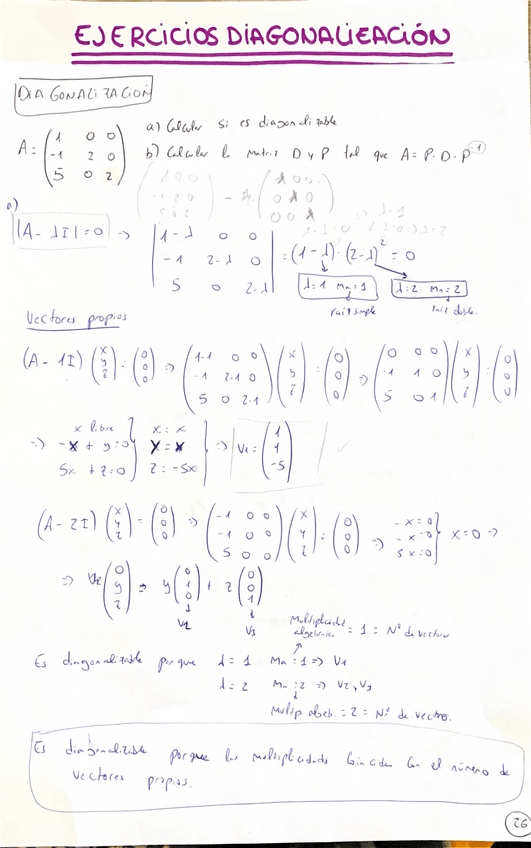 EJERCICIOS DIAGONALIZACIÓN
DIAGONALIZACIÓN
A = (1 0 0
-1 2 0
5 0 2)
a) Calcular si es diagonalizable
b) Calcular la matriz D y P tal que A = P·D·P⁻¹
a)
|A - λI| = 0 => |1-λ 0 0
-1 2-λ 0
5 0 2-λ| = (1-λ)·(2-λ)² = 0
λ=1 Ma=1 λ=2 Ma=2
raiz simple raiz doble.
Vectores propios
(A - 1I) (x y z) = (0 0 0) => (1-1 0 0
-1 2-1 0
5 0 2-1) (x y z) = (0 0 0) => (0 0 0
-1 1 0
5 0 1) (x y z) = (0 0 0)
=> x libre
-x + y = 0
5x + z = 0
x = x
y = x
z = -5x
=> V1 = (1 1 -5)
(A - 2I) (x y z) = (0 0 0) => (-1 0 0
-1 0 0
5 0 0) (x y z) = (0 0 0) => -x=0
-x=0
5x=0
x=0 =>
=> (0 y z) => y (0 1 0) + z (0 0 1)
V2 V3
Multiplicidad algebraica = 1 = Nº de vector
Es diagonalizable porque λ = 1 Ma = 1 => V1
λ = 2 Ma = 2 => V2, V3
Multip algeb. = 2 = Nº de vectores.
Es diagonalizable porque las multiplicidades coinciden con el número de
vectores propios.
26